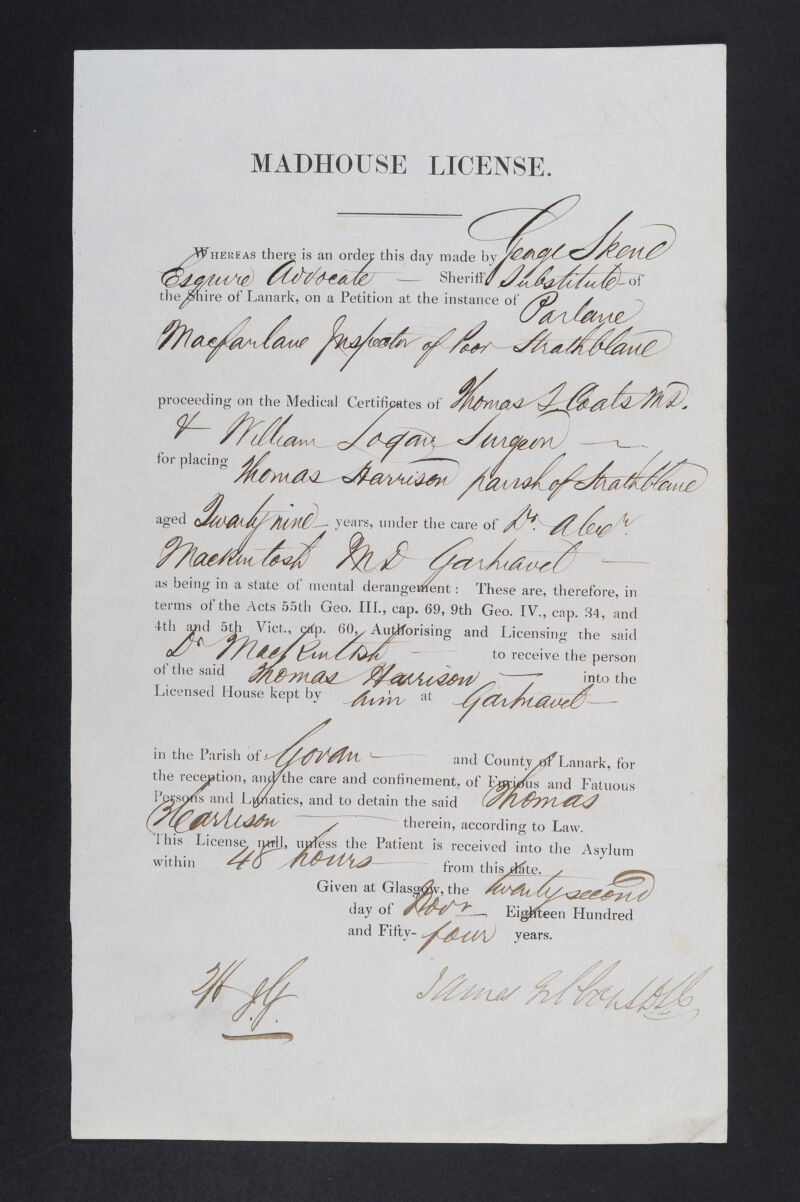 MADHOUSE LICENSE.
WHEREAS there is an order this day made by George Skene
Esquire Advocate — Sheriff Substitute of
the Shire of Lanark, on a Petition at the instance of Parlane
Macfarlane Inspector of Poor Strathblane
proceeding on the Medical Certificates of Thomas S Coats M.D.
& William Logan Surgeon —
for placing Thomas Harrison parish of Strathblane
aged Twenty nine years, under the care of Dr. Alexr.
Mackintosh M D Gartnavel —
as being in a state of mental derangement: These are, therefore, in
terms of the Acts 55th Geo. III., cap. 69, 9th Geo. IV., cap. 34, and
4th and 5th Vict., cap. 60, Authorising and Licensing the said
Dr Mackintosh — to receive the person
of the said Thomas Harrison — into the
Licensed House kept by him at Gartnavel —
in the Parish of Govan — and County of Lanark, for
the reception, and the care and confinement, of Furious and Fatuous
Persons and Lunatics, and to detain the said Thomas
Harrison — therein, according to Law.
This License null, unless the Patient is received into the Asylum
within 48 hours — from this date.
Given at Glasgow, the twenty second
day of Novr — Eighteen Hundred
and Fifty-four years.
J.G. James Gibbons